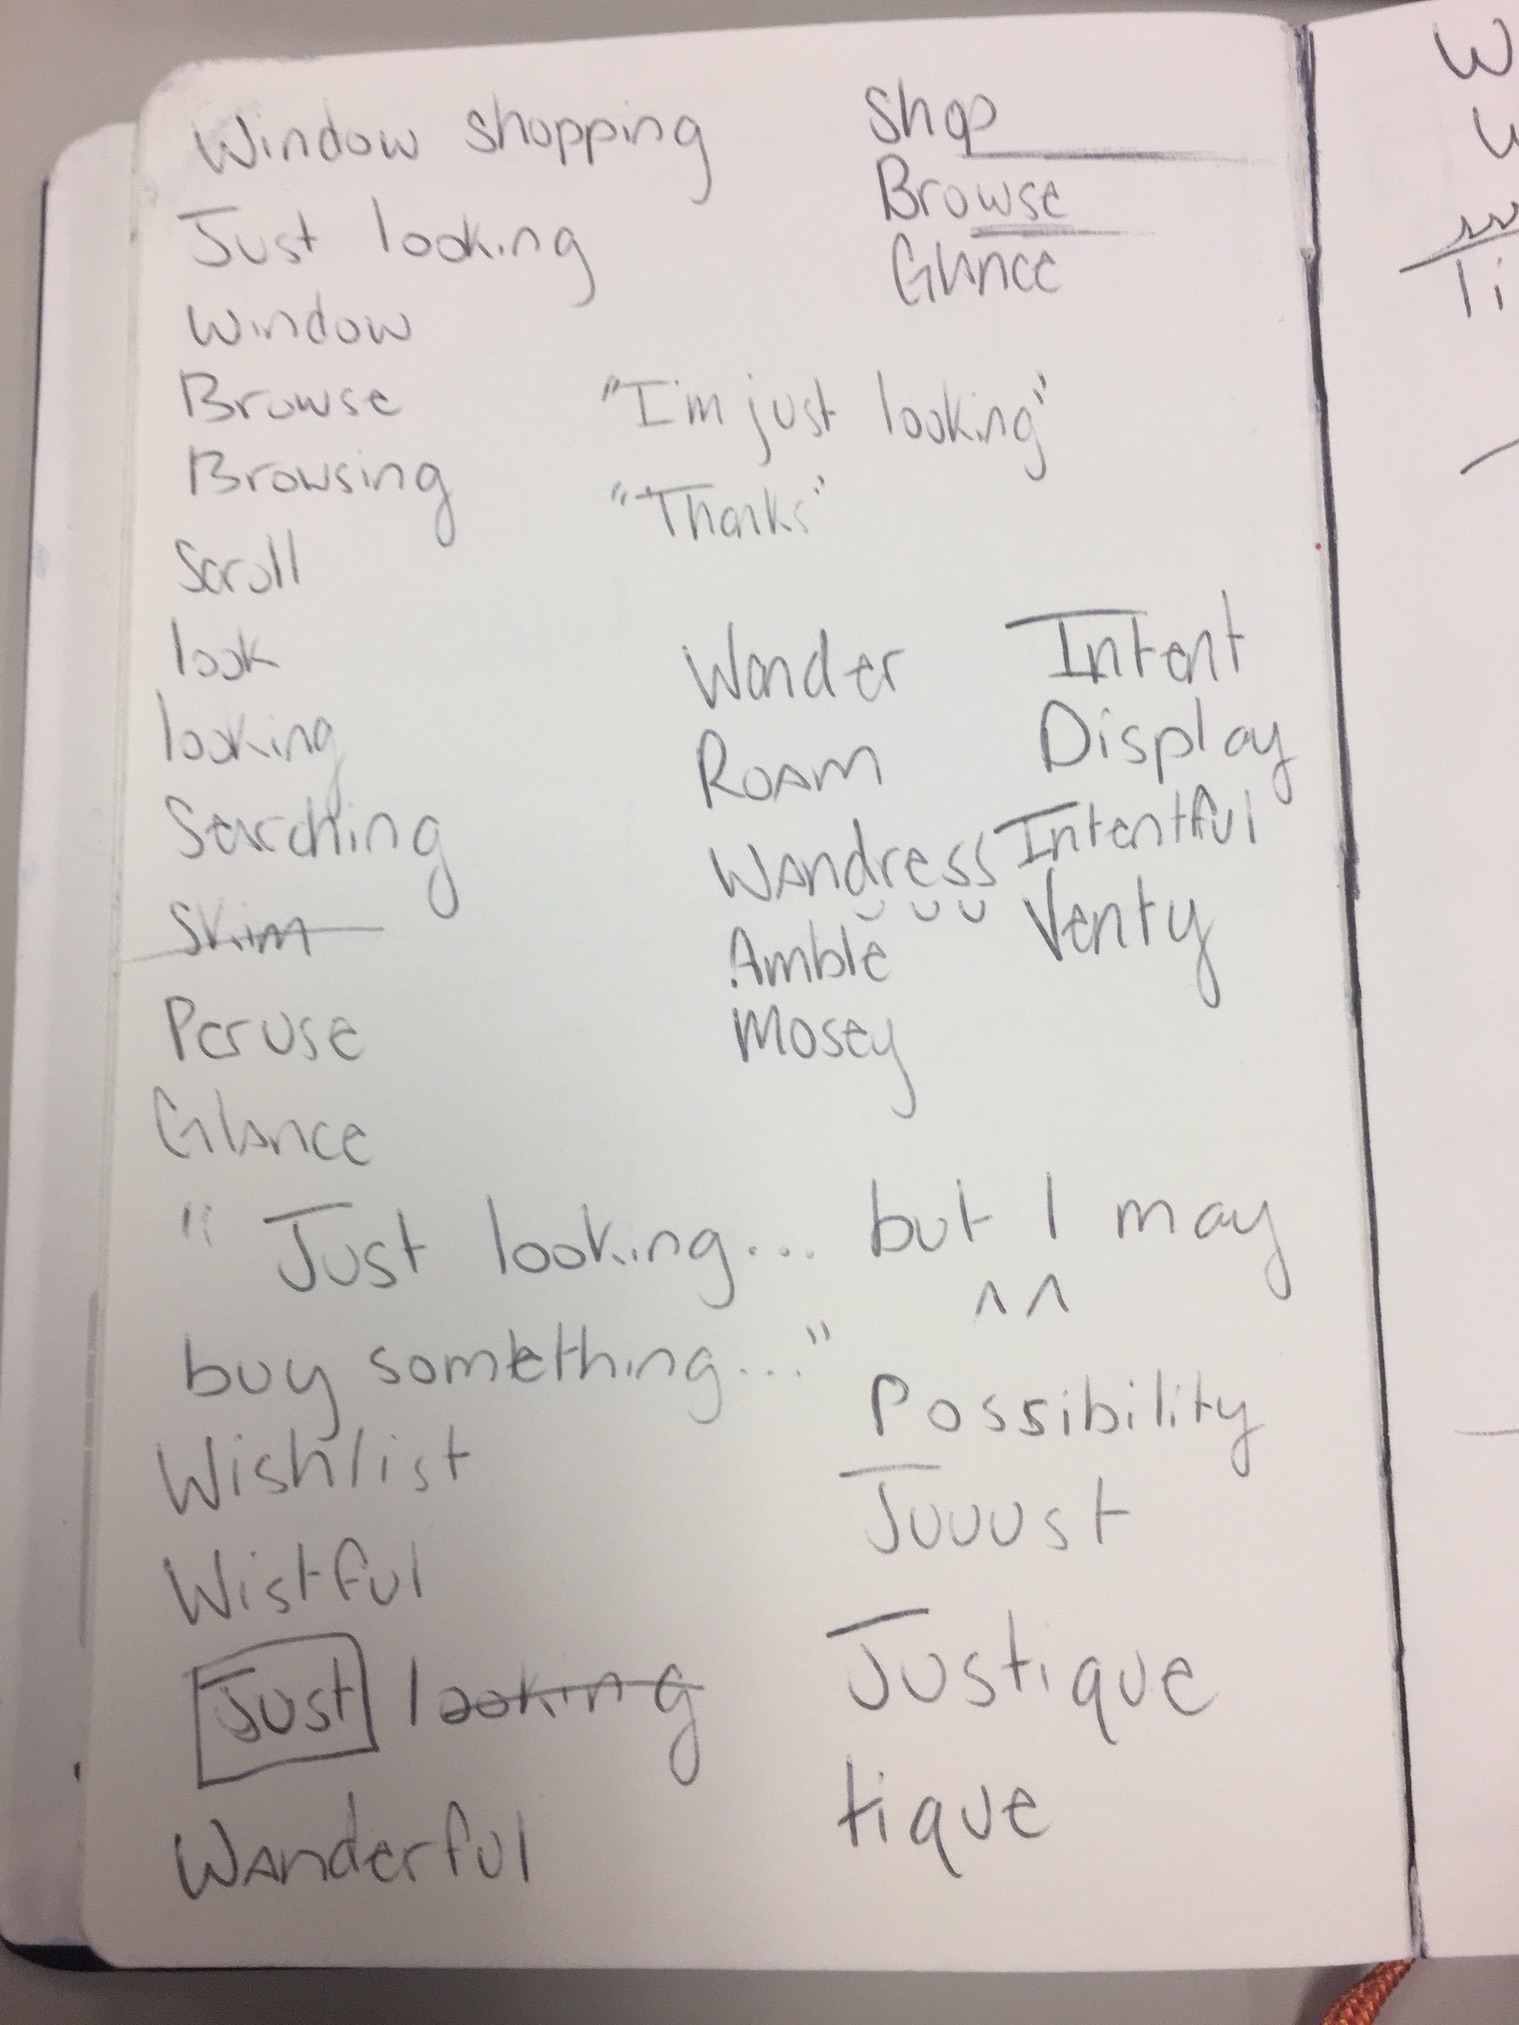 Window shopping
Just looking
Window
Browse
Browsing
Scroll
look
looking
Searching
Skim
Peruse
Glance
Shop
Browse
Glance
"I'm just looking"
"Thanks"
Wander
Roam
Wandress
Amble
Mosey
Intent
Display
Intentful
Venty
"Just looking... but I may
buy something..."
Wishlist
Wistful
Just looking
Wanderful
Possibility
Juuust
Justique
tique